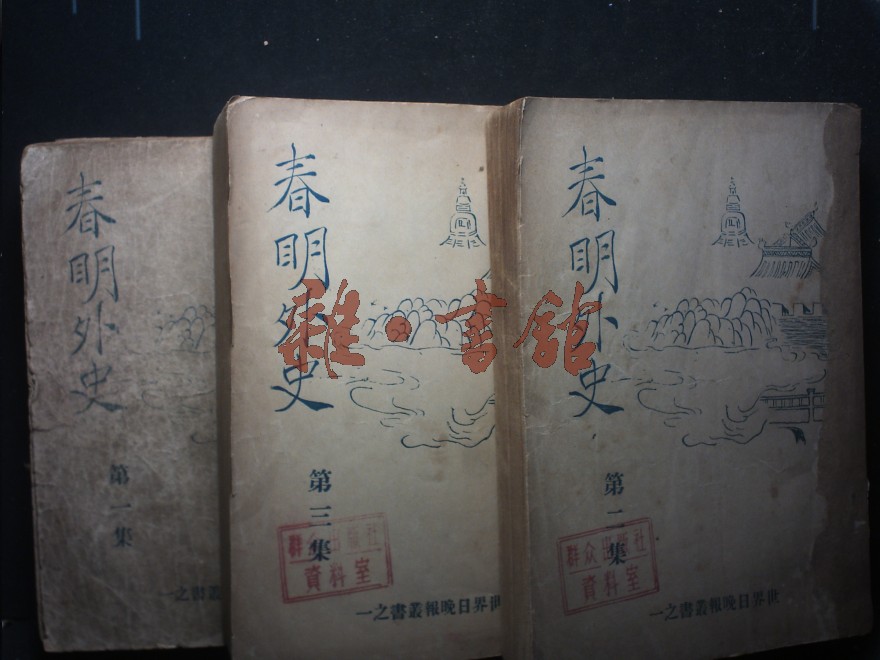 春明外史
第一集
叢書之一
春明外史
第三集
群众出版社
資料室
界日晚報叢書之一
春明外史
第二集
群众出版社
資料室
世界日晚報叢書之一
雜·書館